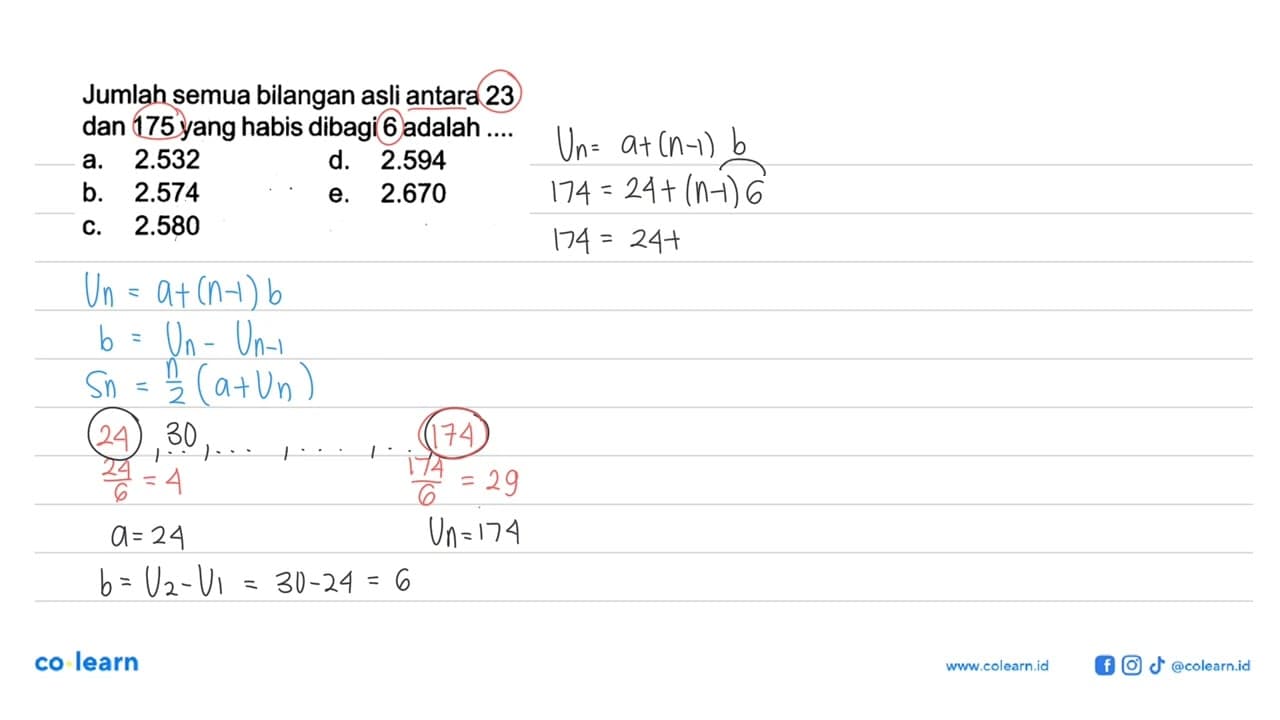 Jumlah semua bilangan asli antara 23
dan 175 yang habis dibagi 6 adalah ....
a. 2.532 d. 2.594
b. 2.574 e. 2.670
c. 2.580
Un = a+(n-1) b
174 = 24+(n-1)6
174 = 24+
Un = a+(n-1) b
b = Un - Un-1
Sn = n/2 (a+Un)
24, 30, ...., ...., .. 174
24/6 = 4 174/6 = 29
a = 24 Un = 174
b = U2 - U1 = 30-24 = 6
co learn
www.colearn.id @colearn.id